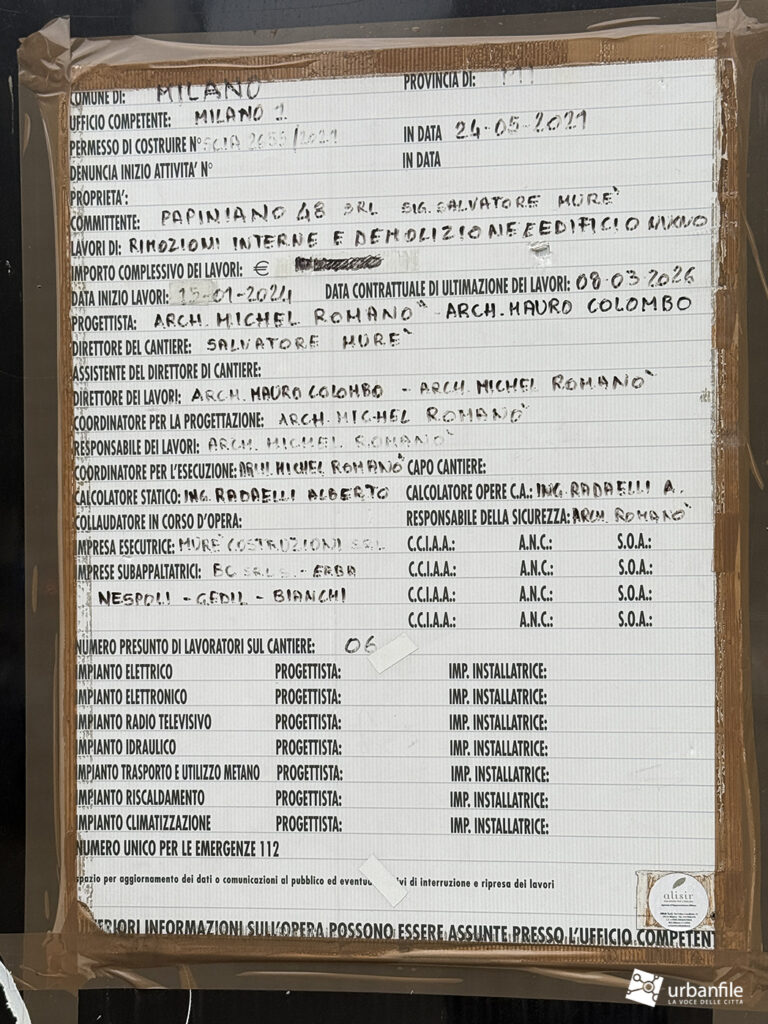 COMUNE DI: MILANO PROVINCIA DI: MI
UFFICIO COMPETENTE: MILANO 1
PERMESSO DI COSTRUIRE N° SCIA 2655/2021 IN DATA 24-05-2021
DENUNCIA INIZIO ATTIVITA' N° IN DATA
PROPRIETA':
COMMITTENTE: PAPINIANO 48 SRL SIG. SALVATORE MURE`
LAVORI DI: RIMOZIONI INTERNE E DEMOLIZIONE E EDIFICIO NUOVO
IMPORTO COMPLESSIVO DEI LAVORI: €
DATA INIZIO LAVORI: 15-01-2024 DATA CONTRATTUALE DI ULTIMAZIONE DEI LAVORI: 08-03-2026
PROGETTISTA: ARCH. MICHEL ROMANO` - ARCH. MAURO COLOMBO
DIRETTORE DEL CANTIERE: SALVATORE MURE`
ASSISTENTE DEL DIRETTORE DI CANTIERE:
DIRETTORE DEI LAVORI: ARCH. MAURO COLOMBO - ARCH. MICHEL ROMANO`
COORDINATORE PER LA PROGETTAZIONE: ARCH. MICHEL ROMANO`
RESPONSABILE DEI LAVORI: ARCH. MICHEL ROMANO`
COORDINATORE PER L'ESECUZIONE: ARCH. MICHEL ROMANO` CAPO CANTIERE:
CALCOLATORE STATICO: ING. RADAELLI ALBERTO CALCOLATORE OPERE C.A.: ING. RADAELLI A.
COLLAUDATORE IN CORSO D'OPERA: RESPONSABILE DELLA SICUREZZA: ARCH. ROMANO`
IMPRESA ESECUTRICE: MURE` COSTRUZIONI SRL C.C.I.A.A.: A.N.C.: S.O.A.:
IMPRESE SUBAPPALTATRICI: BC SRLS - ERBA C.C.I.A.A.: A.N.C.: S.O.A.:
NESPOLI - GEDIL - BIANCHI C.C.I.A.A.: A.N.C.: S.O.A.:
C.C.I.A.A.: A.N.C.: S.O.A.:
NUMERO PRESUNTO DI LAVORATORI SUL CANTIERE: 06
IMPIANTO ELETTRICO PROGETTISTA: IMP. INSTALLATRICE:
IMPIANTO ELETTRONICO PROGETTISTA: IMP. INSTALLATRICE:
IMPIANTO RADIO TELEVISIVO PROGETTISTA: IMP. INSTALLATRICE:
IMPIANTO IDRAULICO PROGETTISTA: IMP. INSTALLATRICE:
IMPIANTO TRASPORTO E UTILIZZO METANO PROGETTISTA: IMP. INSTALLATRICE:
IMPIANTO RISCALDAMENTO PROGETTISTA: IMP. INSTALLATRICE:
IMPIANTO CLIMATIZZAZIONE PROGETTISTA: IMP. INSTALLATRICE:
NUMERO UNICO PER LE EMERGENZE 112
spazio per aggiornamento dei dati o comunicazioni al pubblico ed di interruzione e ripresa dei lavori
alisir
ERIORI INFORMAZIONI SULL'OPERA POSSONO ESSERE ASSUNTE PRESSO L'UFFICIO COMPETENT
urbanfile
LA VOCE DELLE CITTÀ